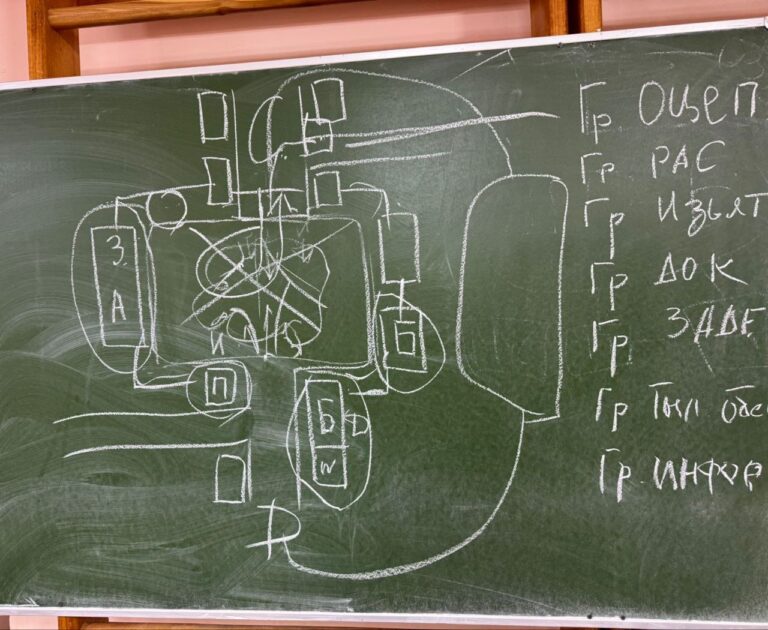 Гр ОЦЕП
Гр РАС
Гр ИЗЬЯТ
Гр ДОК
Гр ЗАДЕ
Гр Тыл обе
Гр ИНФОР
З
А
П
Б
Б